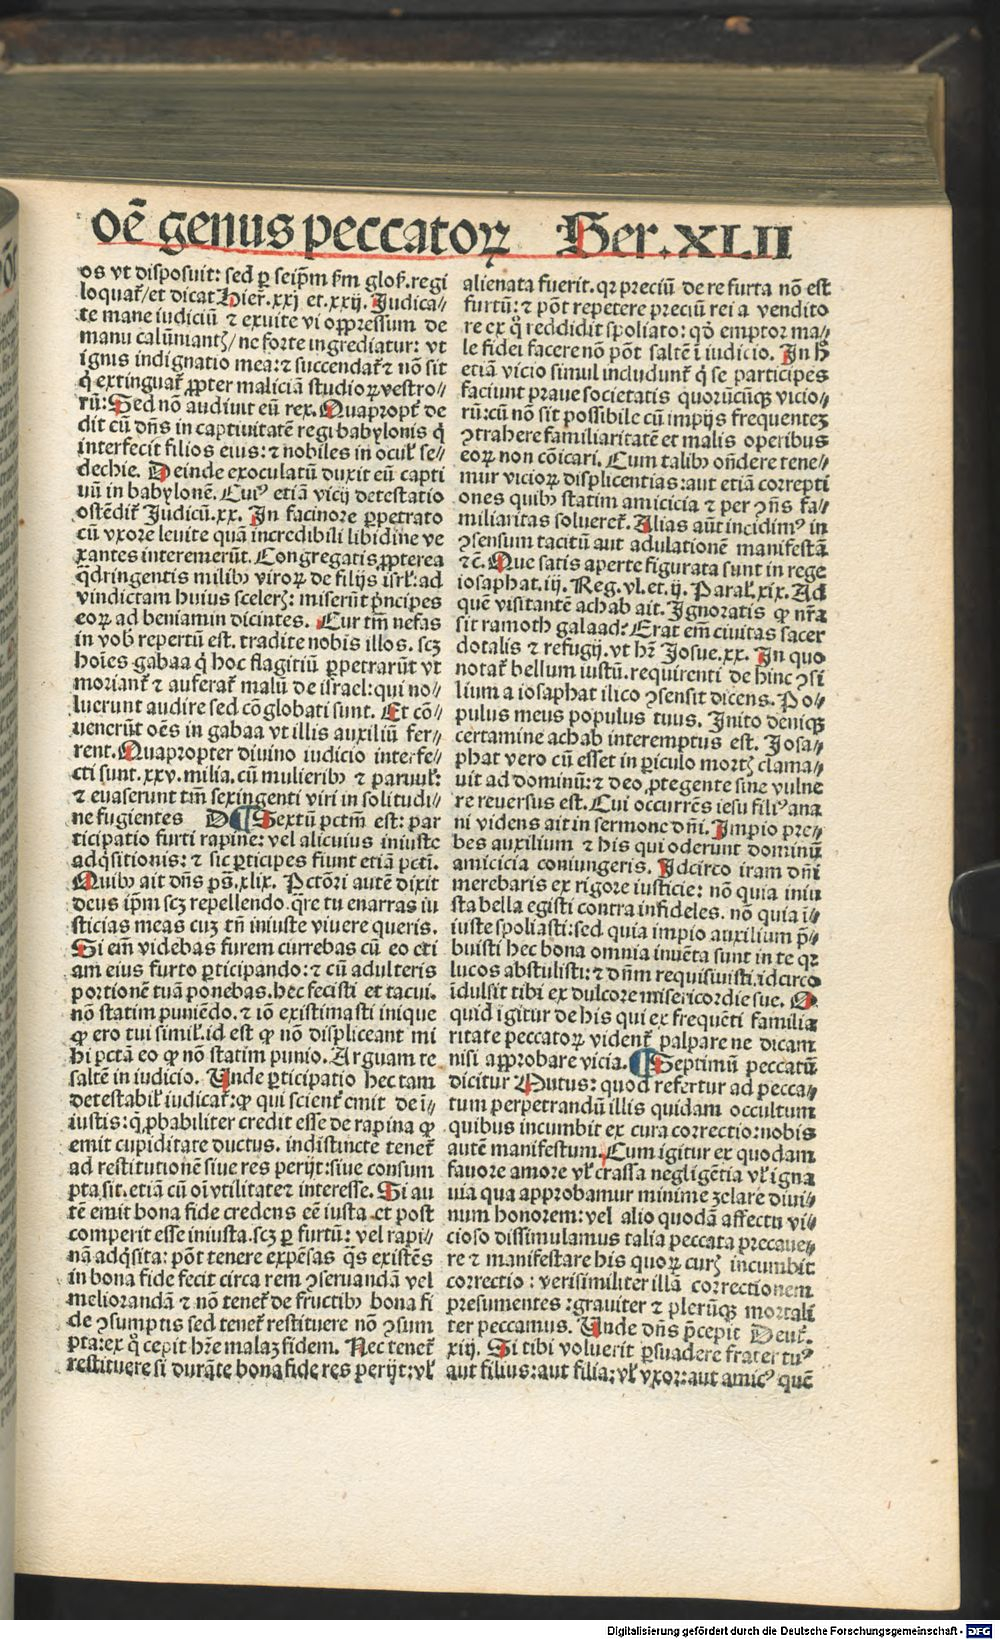 oē genus peccatoꝝ Ser. XLII
os vt disposuit: sed ꝑ seip̄m s̄m glos̄. regi
loquat̄/ et dicat Hier̄. xxj et. xxij. Judica⸗
te mane iudiciū ⁊ eruite vi oppressum de
manu calūniantꝭ/ ne forte ingrediatur: vt
ignis indignatio mea: ⁊ succendat̄ ⁊ nō sit
q̇ extinguat̄ ꝓpter maliciā studioꝝ vestro⸗
rū: Sed nō audiuit eū rex. Quapropt̄ de
dit eū dn̄s in captiuitatē regi babylonis q̇
interfecit filios eius: ⁊ nobiles in ocul̄ se⸗
dechie. Deinde exoculatū duxit eū capti
uū in babylonē. Cuiꝰ etiā vicij detestatio
ostēdit̄ Judicū. xx. In facinore ꝑpetrato
cū vxore leuite quā incredibili libidine ve
xantes interemerūt. Congregatis ꝓpterea
q̈dringentis milibꝫ viroꝝ de filijs isrl̄: ad
vindictam huius scelerꝭ: miserūt pͥncipes
eoꝝ ad beniamin dicentes. Cur tm̄ nefas
in vob repertū est. tradite nobis illos. scꝫ
hoīes gabaa q̇ hoc flagitiū ꝑpetrarūt vt
moriant̄ ⁊ auferat̄ malū de israel: qui no⸗
luerunt audire sed cōglobati sunt. Et cō⸗
uenerūt oēs in gabaa vt illis auxiliū fer⸗
rent. Quapropter diuino iudicio interfe⸗
cti sunt. xxv. milia. cū mulieribꝫ ⁊ paruul̄:
⁊ euaserunt tm̄ sexingenti viri in solitudi⸗
ne fugientes D ¶ Sextū pctm̄ est: par
ticipatio furti rapine: vel alicuius iniuste
adq̇sitionis: ⁊ sic ꝑticipes fiunt etiā pctī.
Quibꝫ ait dn̄s pš. xlix. Pctōri autē dixit
deus ip̄m scꝫ repellendo. q̄re tu enarras iu
sticias meas cuꝫ tn̄ iniuste viuere queris.
Si em̄ videbas furem currebas cū eo eti
am eius furto ꝑticipando: ⁊ cū adulteris
portionē tuā ponebas. hec fecisti et tacui.
nō statim puniēdo. ⁊ iō existimasti inique
ꝙ ero tui simil̄. id est ꝙ nō displiceant mi
hi pctā eo ꝙ nō statim punio. Arguam te
saltē in iudicio. Unde ꝑticipatio hec tam
detestabil̄ iudicat̄: ꝙ qui scient̄ emit de ī⸗
iustis: q̇ ꝓbabiliter credit esse de rapina ꝙ
emit cupiditate ductus. indistincte tenet̄
ad restitutionē siue res perijt: siue consum
pta sit. etiā cū oī vtilitate ⁊ interesse. Si au
tē emit bona fide credens eē iusta et post
comperit esse iniusta. scꝫ ꝑ furtū: vel rapi⸗
nā adq̇sita: pōt tenere expēsas q̇s existēs
in bona fide fecit circa rem ꝯseruandā vel
meliorandā ⁊ nō tenet̄ de fructibꝫ bona fi
de ꝯsumptis sed tenet̄ restituere nō ꝯsum
pta: ex q̊ cepit hr̄e malaꝫ fidem. Nec tenet̄
restituere si durāte bona fide res perijt: vl̄
alienata fuerit. qꝛ preciū de re furta nō est
furtū: ⁊ pōt repetere preciū rei a vendito
re ex q̊ reddidit spoliato: qd̄ emptor ma⸗
le fidei facere nō pōt saltē ī iudicio. In h̄
etiā vicio simul includunt̄ q̇ se participes
faciunt praue societatis quorūcūqꝫ vicio⸗
rū: cū nō sit possibile cū impijs frequenteꝫ
ꝯtrahere familiaritatē et malis operibus
eoꝝ non cōicari. Cum talibꝫ on̄dere tene⸗
mur vicioꝝ displicentias: aut etiā correpti
ones quibꝫ statim amicicia ⁊ per ꝯn̄s fa⸗
miliaritas solueret̄. Alias aūt incidimꝰ in
ꝯsensum tacitū aut adulationē manifestā
⁊c̄. Que satis aperte figurata sunt in rege
iosaphat. iij. Reg. vl. et. ij. Paral̄. xix. Ad
quē visitantē achab ait. Ignoratis ꝙ nr̄a
sit ramoth galaad: Erat em̄ ciuitas sacer
dotalis ⁊ refugij. vt hr̄ Josue. xx. In quo
notat̄ bellum iustū. requirenti de hinc ꝯsi
lium a iosaphat ilico ꝯsensit dicens. Po⸗
pulus meus populus tuus. Inito deniqꝫ
certamine achab interemptus est. Josa⸗
phat vero cū esset in ꝑiculo mortꝭ clama⸗
uit ad dominū: ⁊ deo ꝓtegente sine vulne
re reuersus est. Cui occurrēs iesu filiꝰ ana
ni videns ait in sermone dn̄i. Impio pre⸗
bes auxilium ⁊ his qui oderunt dominū
amicicia coniungeris. Idcirco iram dn̄i
merebaris ex rigore iusticie: nō quia iniu
sta bella egisti contra infideles. nō quia ī⸗
iuste spoliasti: sed quia impio auxilium p̄⸗
buisti hec bona omnia inuēta sunt in te qꝛ
lucos abstulisti: ⁊ dn̄m requisiuisti. idcirco
īdulsit tibi ex dulcore misericordie sue. Q
quid igitur de his qui ex frequēti familia
ritate peccatoꝝ vident̄ palpare ne dicam
nisi approbare vicia. ¶ Septimū peccatū
dicitur Mutus: quod refertur ad pecca⸗
tum perpetrandū illis quidam occultum
quibus incumbit ex cura correctio: nobis
autē manifestum. Cum igitur ex quodam
fauore amore vl̄ crassa negligētia vl̄ igna
uia qua approbamur minime zelare diui⸗
num honorem: vel alio quodā affectu vi⸗
cioso dissimulamus talia peccata precaue⸗
re ⁊ manifestare his quoꝝ curꝭ incumbit
correctio: verisimiliter illā correctionem
presumentes: grauiter ⁊ plerūqꝫ mortali
ter peccamus. Unde dn̄s p̄cepit Deut̄.
xiij. Si tibi voluerit ꝑsuadere frater tuꝰ
aut filius: aut filia: vl̄ vxor: aut amicꝰ quē
Digitalisierung gefördert durch die Deutsche Forschungsgemeinschaft - DFG